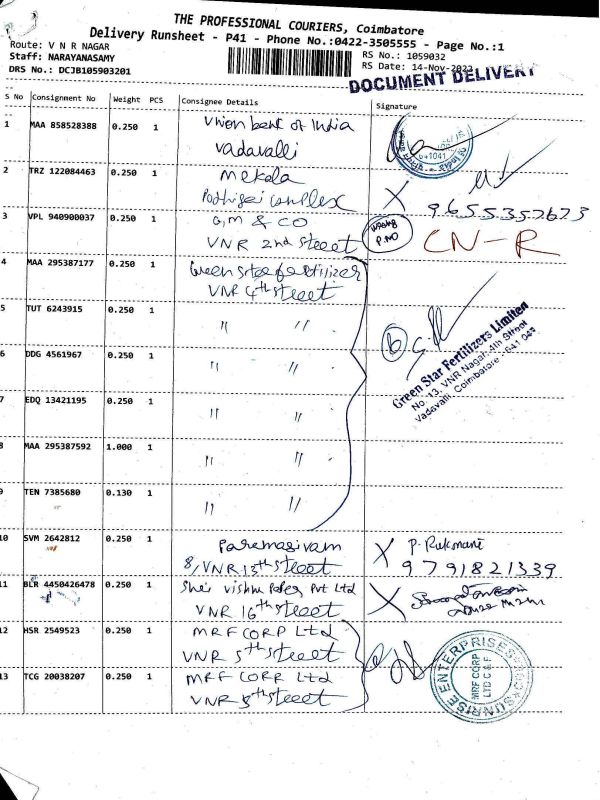 THE PROFESSIONAL COURIERS, Coimbatore
Delivery Runsheet - P41 - Phone No.:0422-3505555 - Page No.:1
Route: V N R NAGAR
RS No.: 1059032
Staff: NARAYANASAMY
RS Date: 14-Nov-2022
DRS No.: DCJB105903201
DOCUMENT DELIVERY
S No Consignment No Weight PCS Consignee Details Signature
1 MAA 858528388 0.250 1 Union bank of India
Vadavalli
2 TRZ 122084463 0.250 1 mekala
Complex
9655352673
3 VPL 940900037 0.250 1 a,m & CO
VNR 2nd street
wrong
P.NO
CN-R
4 MAA 295387177 0.250 1 Green star fertilizer
VNR 4th street
5 TUT 6243915 0.250 1 " "
6 DDG 4561967 0.250 1 " "
6
Green Star Fertilizers Limited
No. 13, VNR Nagar, 4th Street
Vadavalli, Coimbatore - 641 041
7 EDQ 13421195 0.250 1 " "
8 MAA 295387592 1.000 1 " "
9 TEN 7385680 0.130 1 " "
10 SVM 2642812 0.250 1 Paramasivam
8, VNR 13th street
P. Rukmani
9791821339
11 BLR 4450426478 0.250 1 Shri Vishnu Pvt Ltd
VNR 16th street
12 HSR 2549523 0.250 1 MRF CORP Ltd
VNR 5th street
13 TCG 20038207 0.250 1 MRF CORP Ltd
VNR 5th street
SUNRISE ENTERPRISES
MRF CORP
LTD C & F